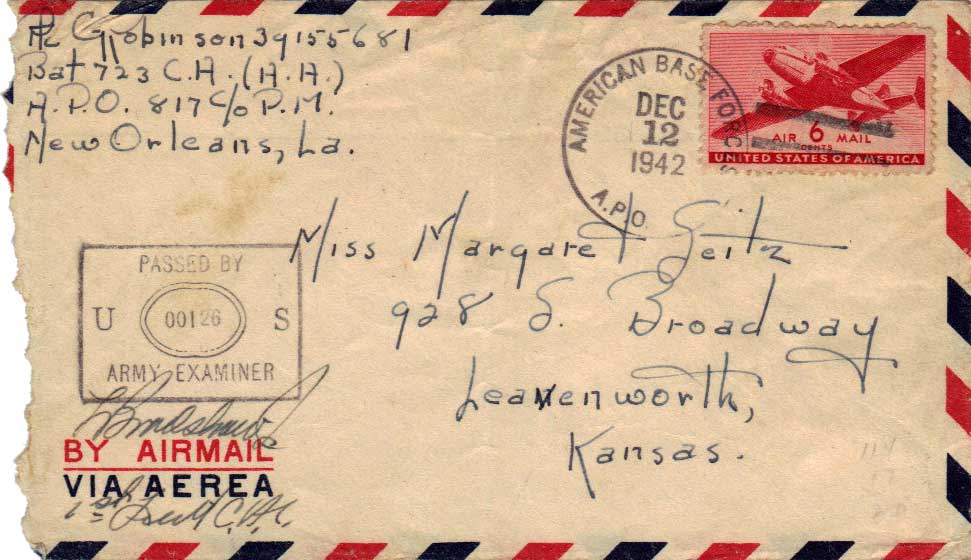 Pfc G Robinson 39155681
Bat 723 C.A. (A.A.)
A.P.O. 817 c/o P.M.
New Orleans, La.
AMERICAN BASE FORCES
DEC
12
1942
A.P.O.
AIR 6 MAIL
CENTS
UNITED STATES OF AMERICA
Miss Margaret Seitz
928 S. Broadway
Leavenworth,
Kansas.
PASSED BY
U 00126 S
ARMY EXAMINER
BY AIRMAIL
VIA AEREA
1st Lieut C.A.C.